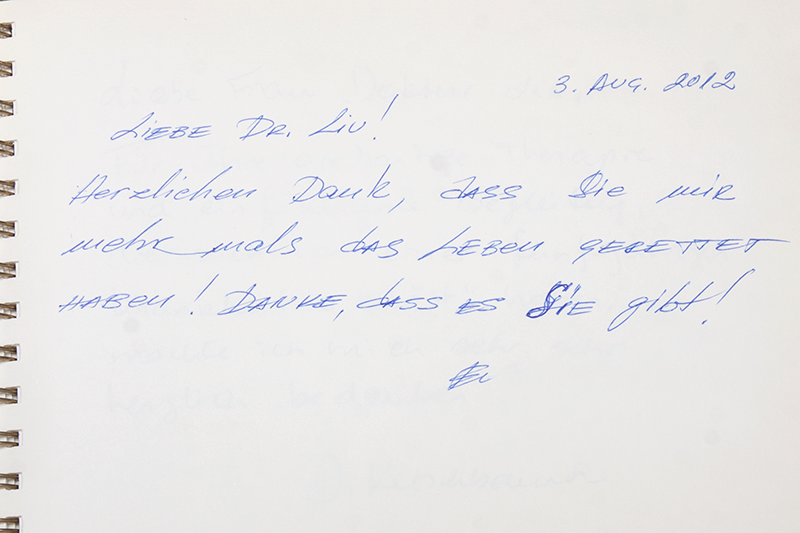 3. AUG. 2012
LIEBE DR. LIU!
Herzlichen Dank, dass Sie mir
mehrmals das LEBEN GERETTET
HABEN! DANKE, dass ES SIE gibt!